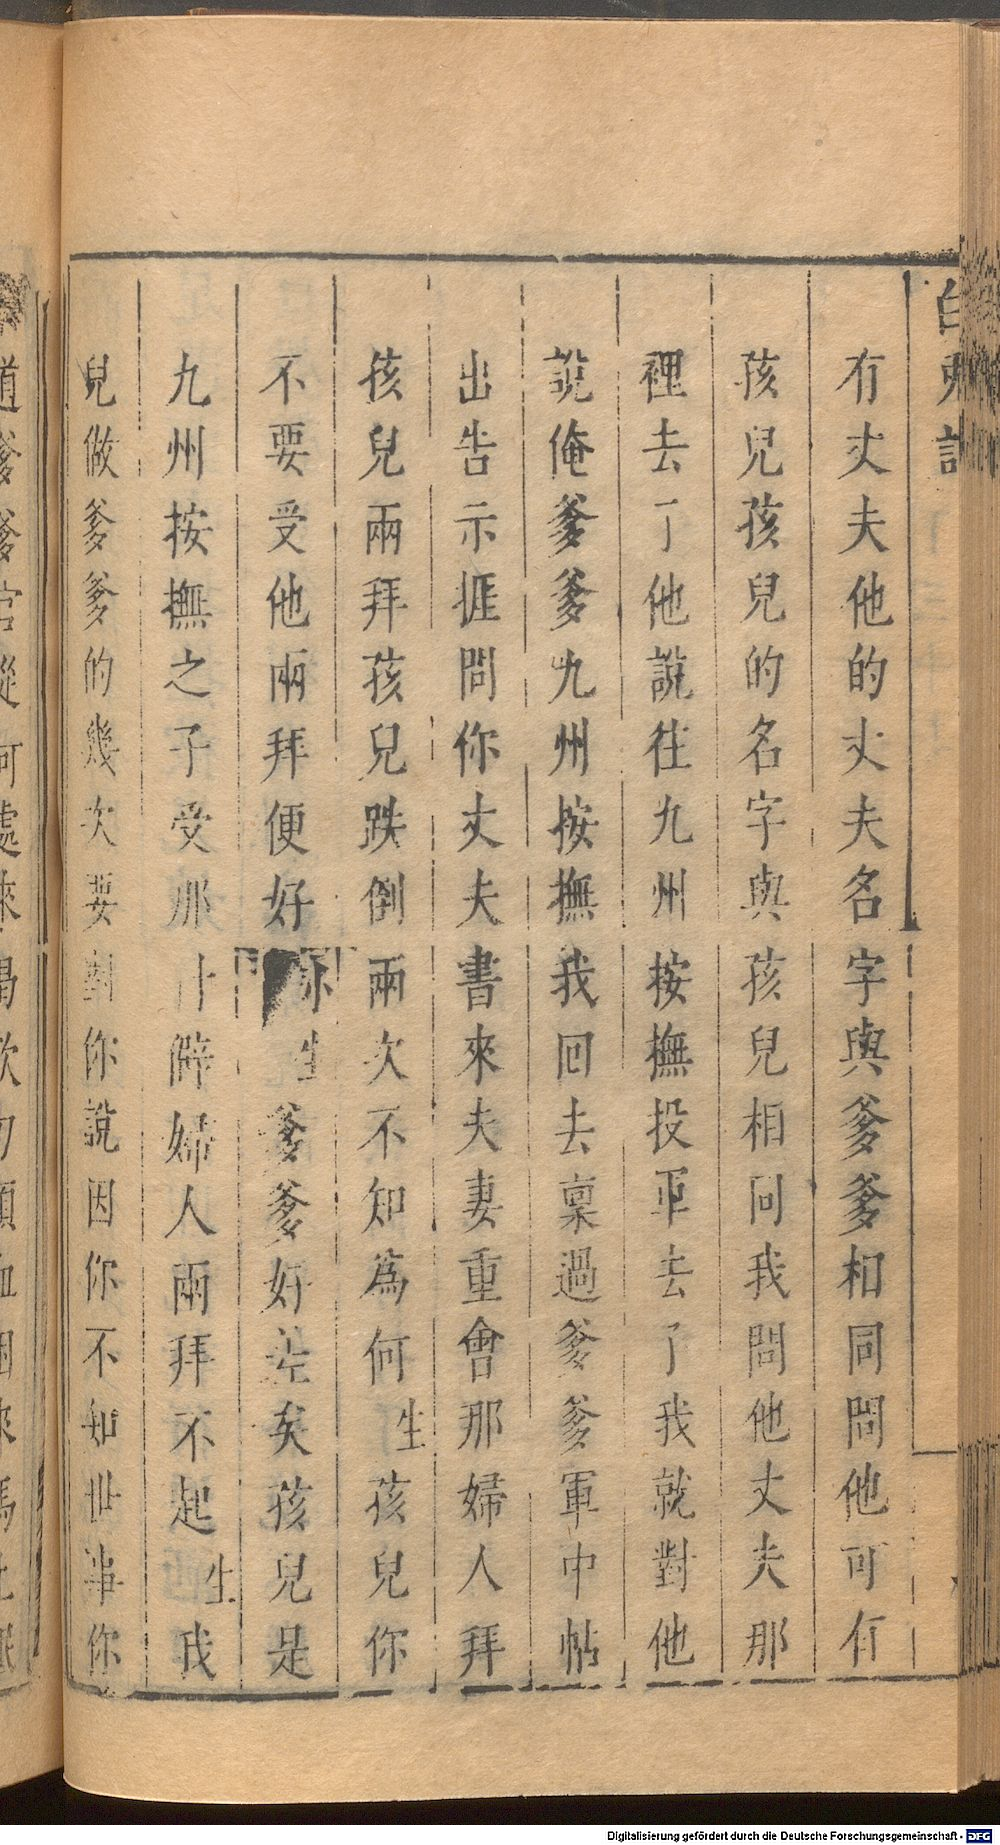 白兎記
有丈夫他的丈夫名字與爹爹相同問他可有
孩兒孩兒的名字與孩兒相同我問他丈夫那
裡去了他說往九州按撫投軍去了我就對他
說俺爹爹九州按撫我回去稟過爹爹軍中帖
出告示捱問你丈夫書來夫妻重會那婦人拜
孩兒兩拜孩兒跌倒兩次不知爲何生孩兒你
不要受他兩拜便好 生爹爹好差矣孩兒是
九州按撫之子受那僻婦人兩拜不起生我
兒做爹爹的幾次要對你說因你不知世事你
道爹爹官從何處來
Digitalisierung gefördert durch die Deutsche Forschungsgemeinschaft - DFG